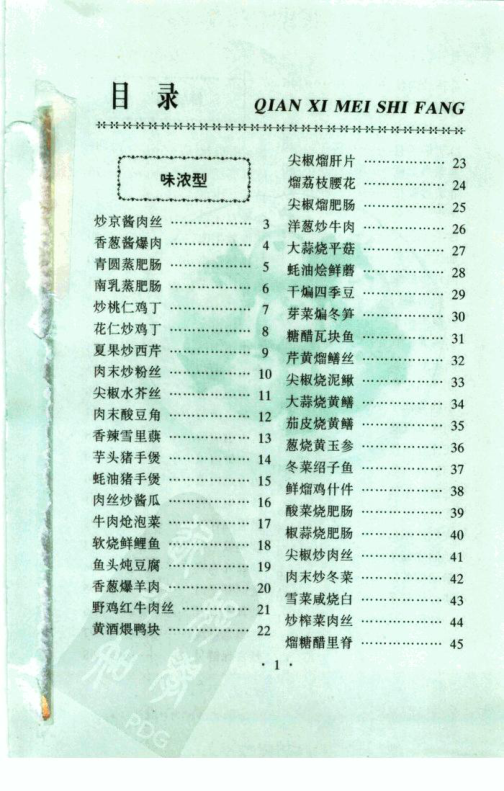 目 录
QIAN XI MEI SHI FANG
味浓型
炒京酱肉丝 ………………… 3
香葱酱爆肉 ………………… 4
青圆蒸肥肠 ………………… 5
南乳蒸肥肠 ………………… 6
炒桃仁鸡丁 ………………… 7
花仁炒鸡丁 ………………… 8
夏果炒西芹 ………………… 9
肉末炒粉丝 ………………… 10
尖椒水芥丝 ………………… 11
肉末酸豆角 ………………… 12
香辣雪里蕻 ………………… 13
芋头猪手煲 ………………… 14
蚝油猪手煲 ………………… 15
肉丝炒酱瓜 ………………… 16
牛肉炝泡菜 ………………… 17
软烧鲜鲤鱼 ………………… 18
鱼头炖豆腐 ………………… 19
香葱爆羊肉 ………………… 20
野鸡红牛肉丝 ……………… 21
黄酒煨鸭块 ………………… 22
尖椒熘肝片 ………………… 23
熘荔枝腰花 ………………… 24
尖椒熘肥肠 ………………… 25
洋葱炒牛肉 ………………… 26
大蒜烧平菇 ………………… 27
蚝油烩鲜蘑 ………………… 28
干煸四季豆 ………………… 29
芽菜煸冬笋 ………………… 30
糖醋瓦块鱼 ………………… 31
芹黄熘鳝丝 ………………… 32
尖椒烧泥鳅 ………………… 33
大蒜烧黄鳝 ………………… 34
茄皮烧黄鳝 ………………… 35
葱烧黄玉参 ………………… 36
冬菜绍子鱼 ………………… 37
鲜熘鸡什件 ………………… 38
酸菜烧肥肠 ………………… 39
椒蒜烧肥肠 ………………… 40
尖椒炒肉丝 ………………… 41
肉末炒冬菜 ………………… 42
雪菜咸烧白 ………………… 43
炒榨菜肉丝 ………………… 44
熘糖醋里脊 ………………… 45
· 1 ·
PDG